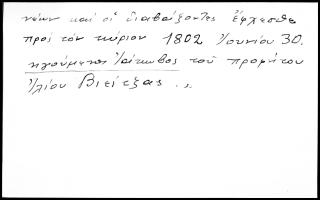 νέων καὶ οἱ διαβάζοντες εὔχεσθε
πρὸς τὸν κύριον 1802 Ἰουνίου 30.
ηγούμενος Ἰάκωβος τοῦ προφήτου
Ἠλίου Βιτίτζας .,